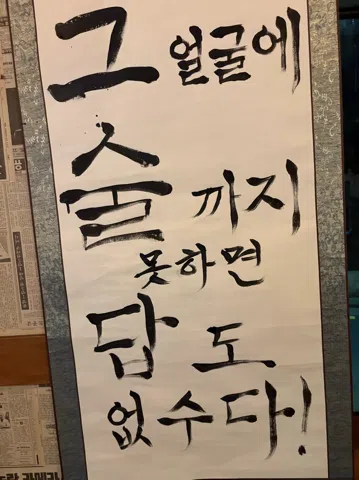 그 얼굴에
술까지
못하면
답도
없수다!